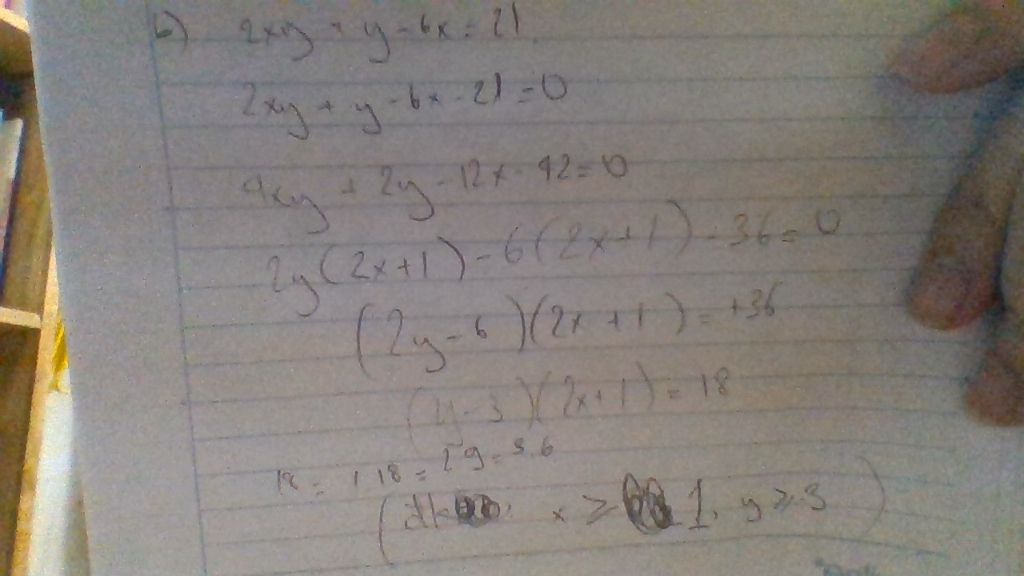 b) 2xy + y - 6x = 21.
2xy + y - 6x - 21 = 0
4xy + 2y - 12x - 42 = 0
2y(2x+1) - 6(2x+1) - 36 = 0
(2y-6)(2x+1) = +36
(y-3)(2x+1) = 18
18 = 1.18 = 2.9 = 3.6
(đk x ≥ 1, y ≥ 3)